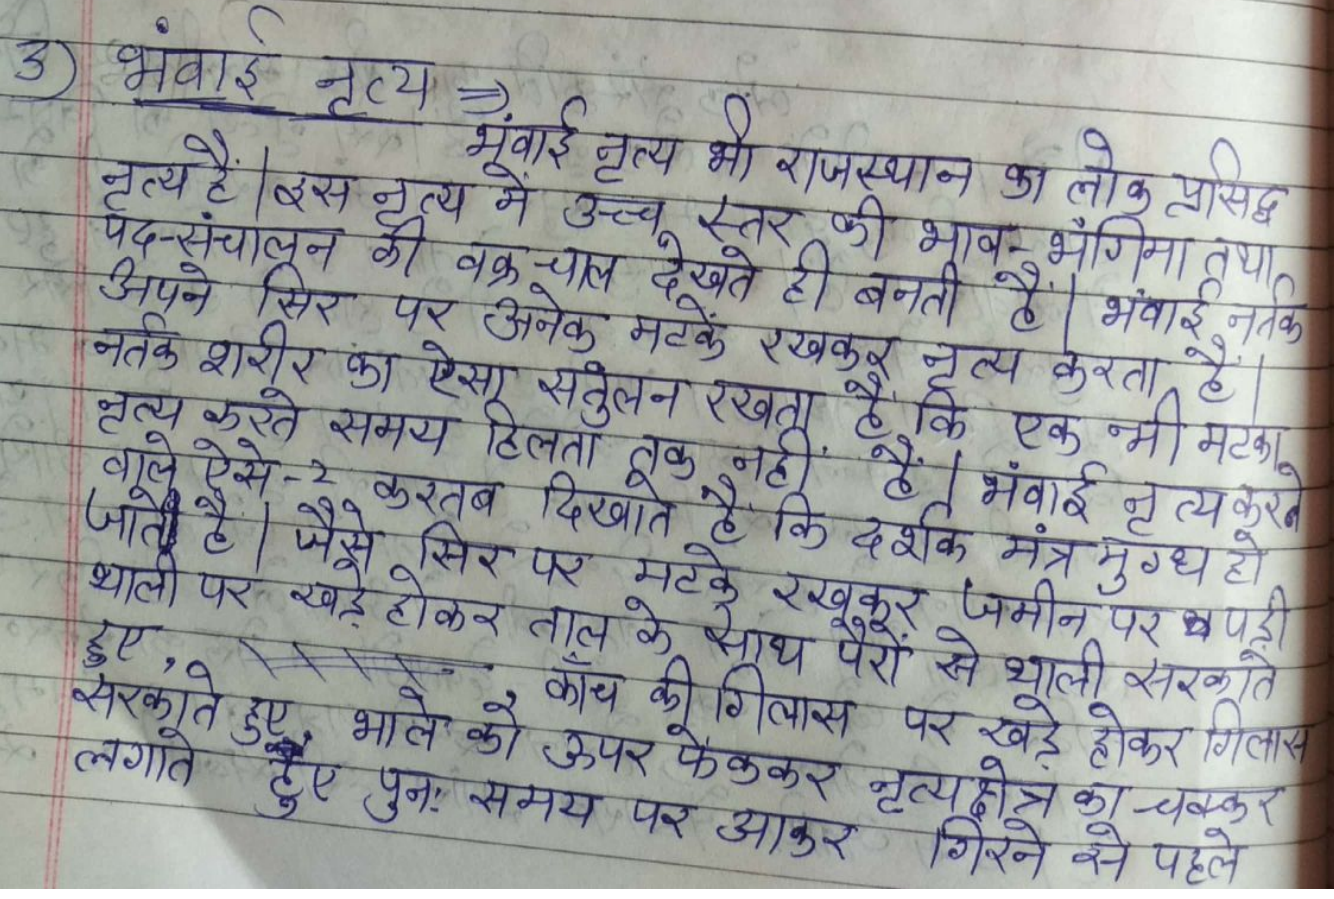 3) भंवाई नृत्य ⇒
भंवाई नृत्य भी राजस्थान का लोक प्रसिद्ध
नृत्य है। इस नृत्य में उच्च स्तर की भाव-भंगिमा तथा
पद-संचालन की वक्र चाल देखते ही बनती है। भंवाई नर्तक
अपने सिर पर अनेक मटकें रखकर नृत्य करता है।
नर्तक शरीर का ऐसा सतुंलन रखता है कि एक भी मटका
नृत्य करते समय हिलता तक नहीं है। भंवाई नृत्य करने
वाले ऐसे-2 करतब दिखाते है कि दर्शक मंत्र मुग्ध हो
जाते है। जैसे सिर पर मटके रखकर जमीन पर पड़ी
थाली पर खड़े होकर ताल के साथ पैरों से थाली सरकाते
हुए, काँच की गिलास पर खड़े होकर गिलास
सरकाते हुए, भाले को ऊपर फेंककर नृत्य क्षेत्र का चक्कर
लगाते हुए पुनः समय पर आकर गिरने से पहले